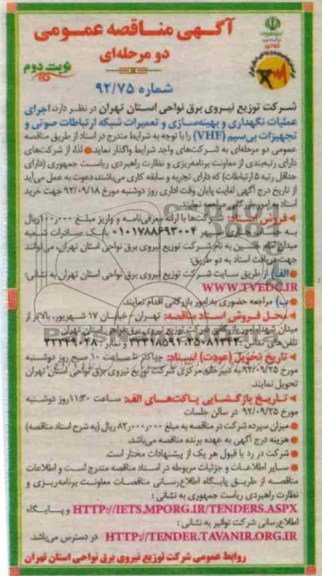 آگهی مناقصه عمومی
دو مرحله‌ای
نوبت دوم
شماره ۹۲/۷۵
شرکت توزیع نیروی برق نواحی استان تهران در نظر دارد اجرای
عملیات نگهداری و بهینه‌سازی و تعمیرات شبکه ارتباطات صوتی و
تجهیزات بی‌سیم (VHF) را با توجه به شرایط مندرج در اسناد از طریق مناقصه
عمومی دو مرحله‌ای به شرکت‌های واجد شرایط واگذار نماید. لذا از شرکت‌های
دارای رتبه‌بندی از معاونت برنامه‌ریزی و نظارت راهبردی ریاست جمهوری (دارای
حداقل رتبه ۵ ارتباطات) که دارای تجربه و سابقه کاری می‌باشند، دعوت به عمل می‌آید
از تاریخ درج آگهی لغایت پایان وقت اداری روز دوشنبه مورخ ۹۲/۰۹/۱۸ جهت خرید
اسناد به امور بازرگانی مراجعه نمایند.
فروش اسناد: شرکت‌ها با ارائه معرفی‌نامه و واریز مبلغ ۱۰۰٫۰۰۰ریال
به حساب سپهر ۰۱۰۱۷۸۸۶۹۳۰۰۴ بانک صادرات شعبه
میدان به نام شرکت توزیع نیروی برق نواحی استان تهران، می‌توانند
جهت دریافت اسناد به دو طریق:
الف) از طریق سایت شرکت توزیع نیروی برق نواحی استان تهران به نشانی:
WWW.TVEDC.IR
ب) مراجعه حضوری به امور بازرگانی اقدام نمایند.
محل فروش اسناد مناقصه: تهران، خیابان ۱۷ شهریور، بالاتر از
میدان شهدا، امور بازرگانی شرکت توزیع نیروی برق نواحی استان تهران
تلفن‌های تماس: ۳۵۰۸۱۳۴۴-۳۳۳۱۸۵۹۱ و نمابر: ۳۳۳۴۹۰۴۸
تاریخ تحویل (عودت) اسناد: حداکثر تا ساعت ۱۰ صبح روز دوشنبه
مورخ ۹۲/۰۹/۲۵ به دبیرخانه مرکزی شرکت توزیع نیروی برق نواحی استان تهران
تحویل نمایند.
تاریخ بازگشایی پاکت‌های الف: ساعت ۱۱:۳۰ روز دوشنبه
مورخ ۹۲/۰۹/۲۵ در سالن جلسات
میزان سپرده شرکت در مناقصه به مبلغ ۸۲٫۰۰۰٫۰۰۰ ریال (به شرح اسناد مناقصه)
هزینه درج آگهی به عهده برنده مناقصه می‌باشد.
شرکت در رد یا قبول هر یک از پیشنهادات مختار است.
سایر اطلاعات و جزئیات مربوطه در اسناد مناقصه مندرج است و اطلاعات
مناقصه از طریق پایگاه اطلاع‌رسانی مناقصات معاونت برنامه‌ریزی و
نظارت راهبردی ریاست جمهوری به نشانی:
HTTP://IETS.MPORG.IR/TENDERS.ASPX و پایگاه
اطلاع‌رسانی شرکت توانیر به نشانی:
HTTP://TENDER.TAVANIR.ORG.IR در دسترس می‌باشد.
روابط عمومی شرکت توزیع نیروی برق نواحی استان تهران